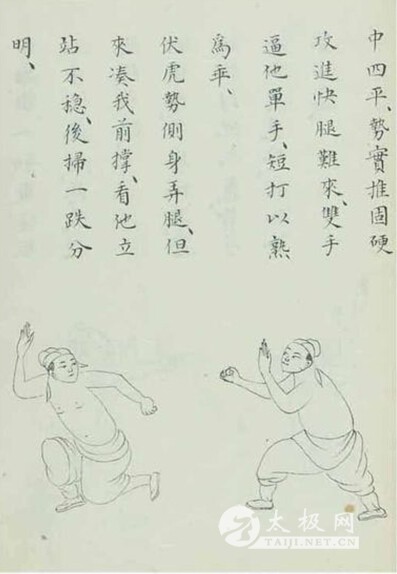 中四平、勢實推固硬
攻進快腿難來、雙手
逼他單手、短打以熟
爲乖、
伏虎勢側身弄腿、但
來凑我前撑、看他立
站不穩、後掃一跌分
明、
太极网
TAIJI.NET.CN